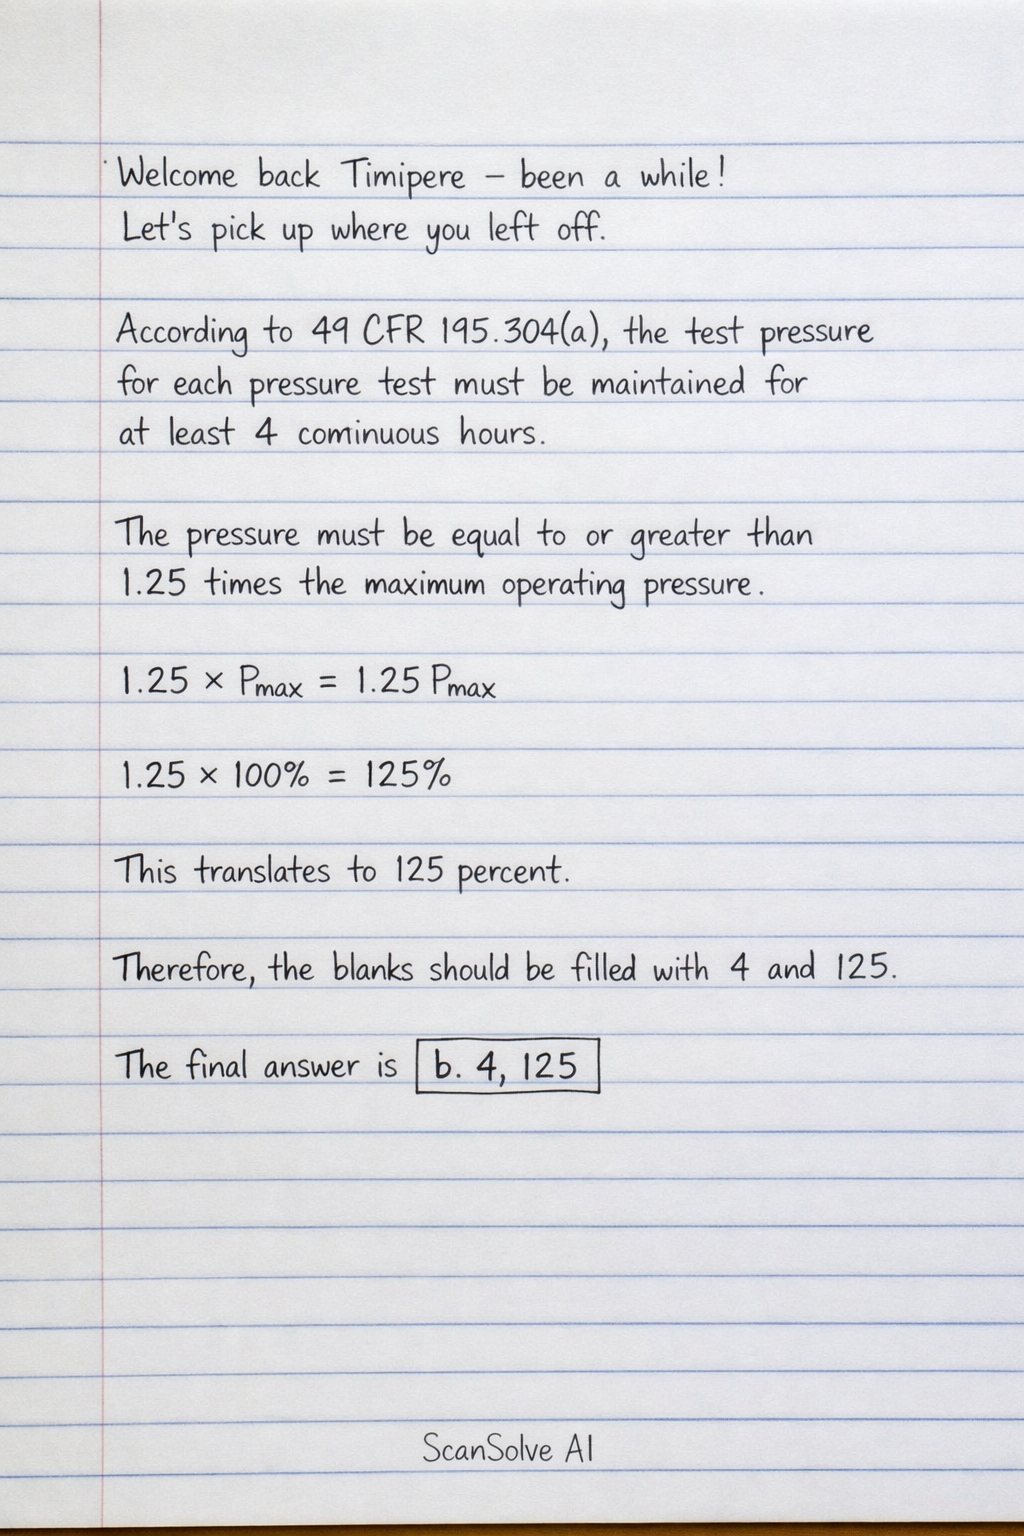 Welcome back Timipere – been a while!
Let's pick up where you left off.
According to 49 CFR 195.304(a), the test pressure
for each pressure test must be maintained for
at least 4 cominuous hours.
The pressure must be equal to or greater than
1.25 times the maximum operating pressure.
1.25 × Pmax = 1.25 Pmax
1.25 × 100% = 125%
This translates to 125 percent.
Therefore, the blanks should be filled with 4 and 125.
The final answer is b. 4, 125
ScanSolve AI